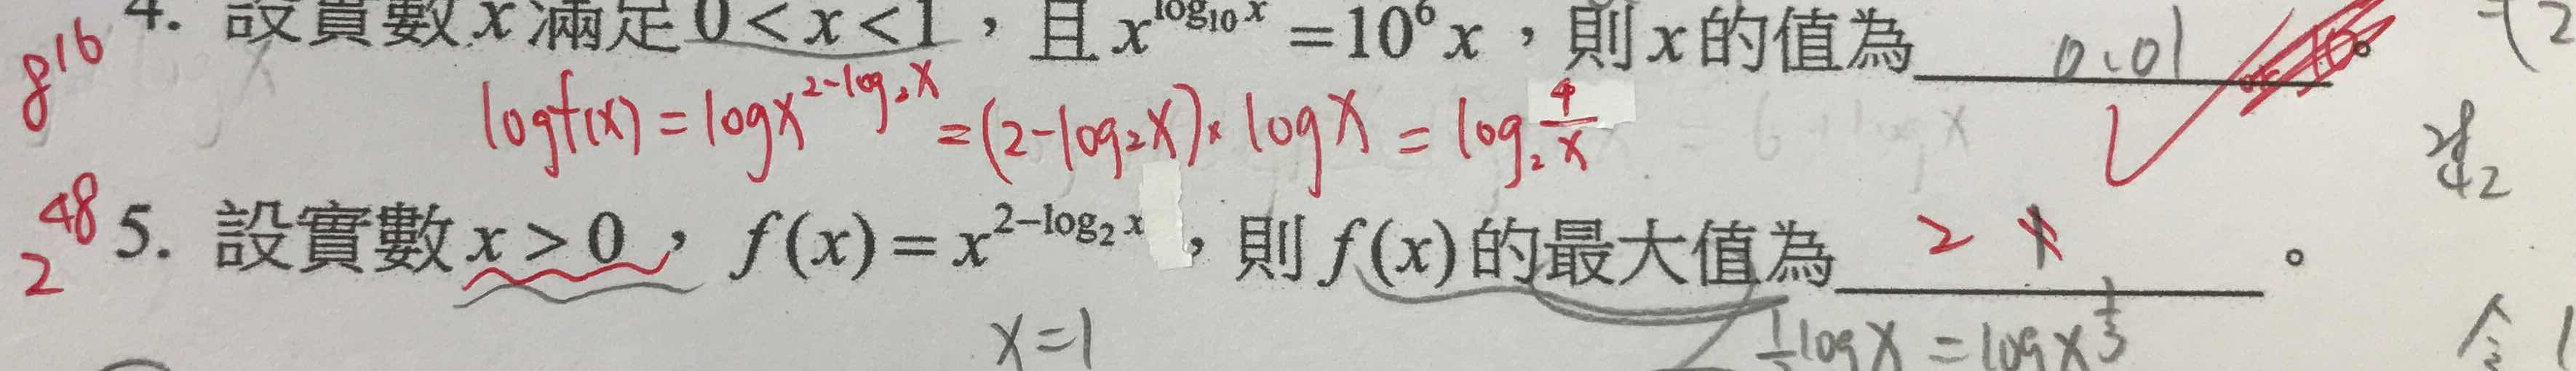 4. 設實數 x 滿足 0 < x < 1，且 x^{log_{10} x} = 10^6 x，則 x 的值為 0.01 。
8^{16}
log f(x) = log x^{2-log_2 x} = (2-log_2 x) × log x = log_2 \frac{4}{x}
2^{48}
5. 設實數 x > 0，f(x) = x^{2-log_2 x}，則 f(x) 的最大值為 2 。
x=1
log x = log x^{\frac{1}{3}}
令